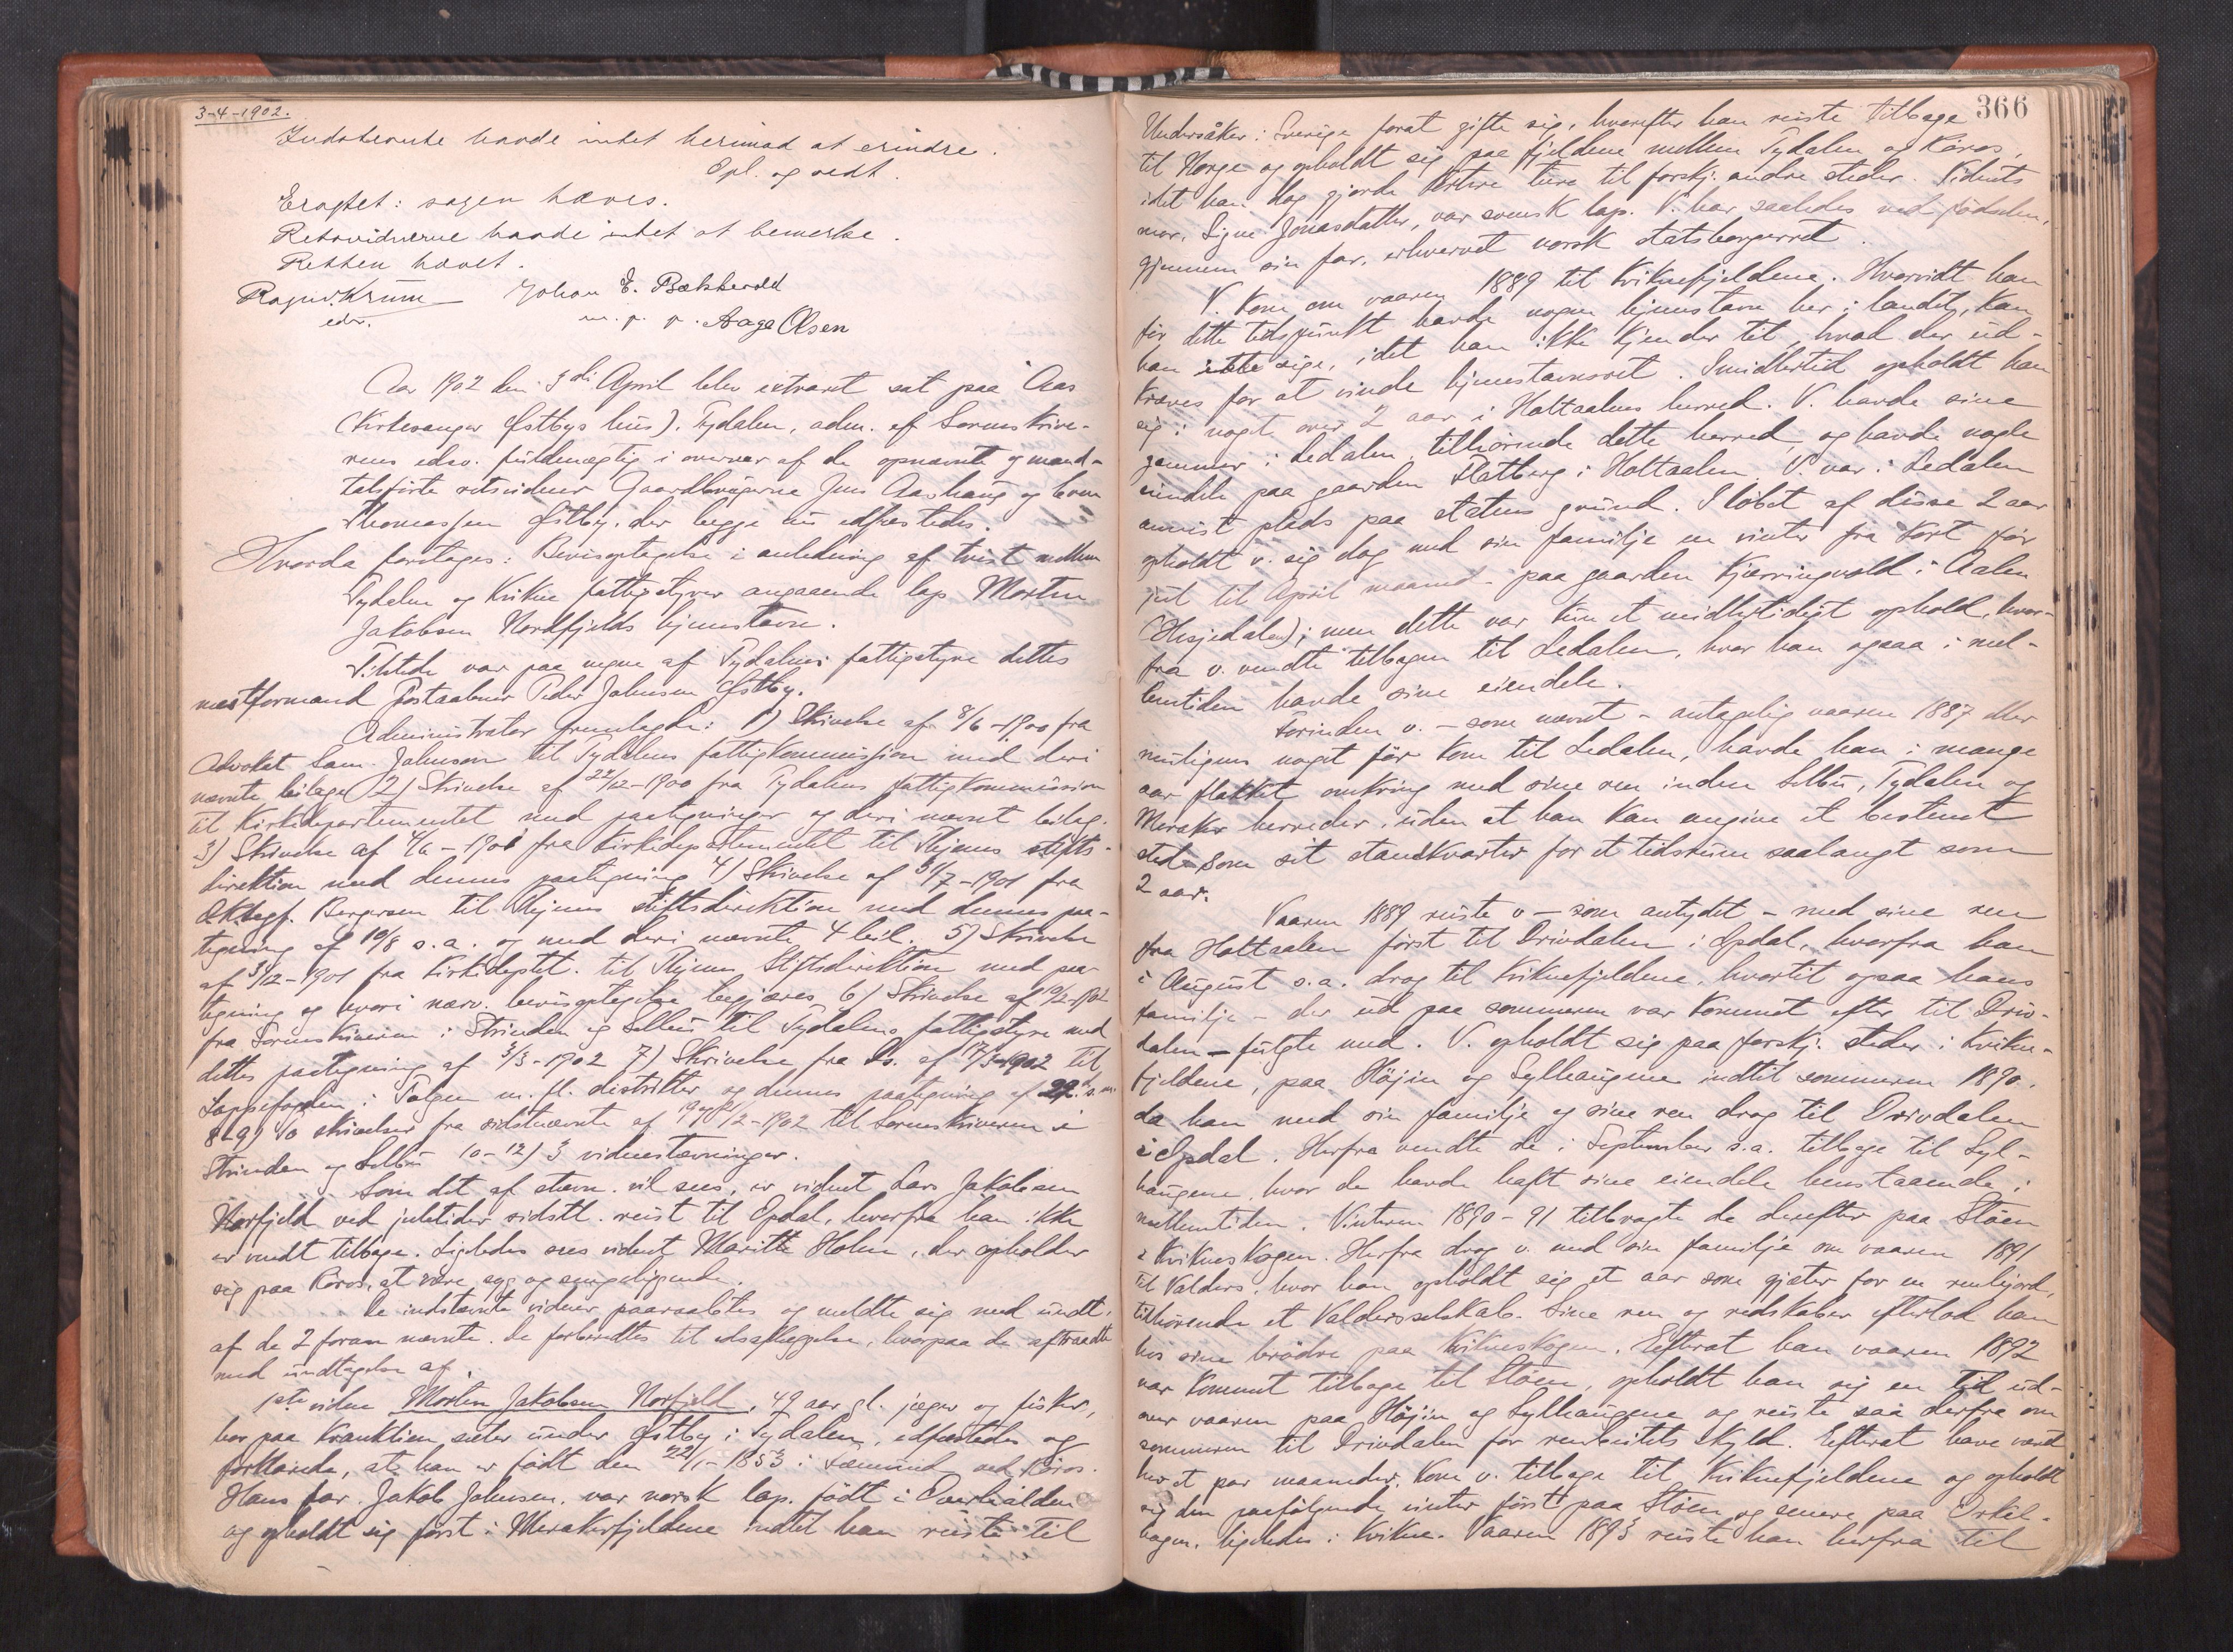 3-4-1902.
Indstevnte havde intet herimod at erindre.
Opl. og vedt.
Eragtet: sagen hæves.
Retsvidnerne havde intet at bemerke.
Retten hævet.
Ragnv. Krüm Johan E. Bækkevold
edsv. m. p. p. Aage Olsen
Aar 1902 den 3die April blev extraret sat paa Aas
(Kirkesanger Østbys hus), Tydalen, adm. af Sorenskrive-
rens edsv. fuldmægtig i overvær af de opnævnte og mand-
talsførte retsvidner Gaardbrugerne Jens Aashaug og Even
Thomassen Østby, der begge nu edfæstedes.
Hvorda foretages: Bevisoptagelse i anledning af tvist mellem
Tydalen og Kvikne fattigstyrer angaaende lap Morten
Jakobsen Nordfjelds hjemstavn.
Tilstede var paa vegne af Tydalens fattigstyre dettes
næstformand Postaabner Peder Johnsen Østby.
Administrator fremlagde: 1) Skrivelse af 8/6-1900 fra
Advokat Sam. Johnson til Tydalens fattigkommission med deri
nævnte bilage 2) Skrivelse af 22/12-1900 fra Tydalens fattigkommission
til Kirkedepartementet med paategninger og deri nævnt beileg.
3) Skrivelse af 4/6-1901 fra Kirkedepartementet til Thjems stifts-
direktion med dennes paategning 4) Skrivelse af 31/7-1901 fra
O.K.sagf. Bergersen til Thjems stiftsdirektion med dennes paa-
tegning af 10/8 s.a. og med deri nævnte 4 beil. 5) Skrivelse
af 3/12-1901 fra Kirkedeptet. til Thjems Stiftsdirektion med paa-
tegning og hvori nærv. bevisoptagelse begjæres 6) Skrivelse af 10/2-1902
fra Sorenskriveren i Strinden og Selbu til Tydalens fattigstyre med
dettes paategning af 3/3-1902 7) Skrivelse fra Ds. af 17/3-1902 til
Lappefogden i Tolgen m. fl. distrikter og dennes paategning af 22. s.m.
8-9) to skrivelser fra sidstnævnte af 19 og 21/2-1902 til Sorenskriveren i
Strinden og Selbu 10-12) 3 vidnestævninger.
Som det af stævn. vil sees, er vidnet Lars Jakobsen
Norfjeld ved juletider sidstl. reist til Opdal, hvorfra han ikke
er vendt tilbage. Ligeledes sees vidnet Marith Holm, der opholder
sig paa Røros, at være syg og sengeliggende.
De indstævnte vidner paaraabtes og meldte sig med undt.
af de 2 foran nævnte. De forberedtes til edsaflæggelse, hvorpaa de aftraadte
med undtagelse af
1ste vidne Morten Jakobsen Norfjeld, 49 aar gl. jæger og fisker,
bor paa Kranktien sæter under Østby i Tydalen, edfæstedes og
forklarede, at han er født den 22/1-1853 i Fæmund ved Røros.
Hans far, Jakob Johnsen, var norsk lap, født i Overhalden
og opholdt sig først i Merakerfjeldene indtil han reiste til
366
Undersåker i Sverige forat gifte sig, hvorefter han reiste tilbage
til Norge og opholdt sig paa fjeldene mellem Tydalen og Røros,
idet han dog gjorde kortere ture til forskj. andre steder. Vidnets
mor, Signe Jonasdatter, var svensk lap. V. har saaledes ved fødselen,
gjennem sin far, erhvervet norsk statsborgerret.
V. kom om vaaren 1889 til Kviknefjeldene. Hvorvidt han
før dette tidspunkt havde nogen hjemstavn her i landet, kan
han ikke sige, idet han ikke kjender til, hvad der ud-
kræves for at vinde hjemstavnsret. Imidlertid opholdt han
sig i noget over 2 aar i Holtaalens herred. V. havde sine
gammer i Ledalen, tilhørende dette herred, og havde nogle
eiendele paa gaarden Flatberg i Holtaalen. V. var i Ledalen
anvist plads paa statens grund. I løbet af disse 2 aar
opholdt v. sig dog med sin familje en vinter fra kort før
jul til April maaned paa gaarden Kjærringvold i Aalen
(Hesjedalen); men dette var kun et midlertidigt ophold, hvor-
fra v. vendte tilbagen til Ledalen, hvor han ogsaa i mel-
lemtiden havde sine eiendele.
Forinden v. – som nævnt – antagelig vaaren 1887 eller
muligens noget før kom til Ledalen, havde han i mange
aar flakket omkring med sine ren inden Selbu, Tydalen og
Meraker herreder, uden at han kan angive et bestemt
sted som sit standkvarter for et tidsrum saalangt som
2 aar.
Vaaren 1889 reiste v – som antydet – med sine ren
fra Holtaalen først til Drivdalen i Opdal, hvorfra han
i August s.a. drog til Kviknefjeldene, hvortil ogsaa hans
familje – der ud paa sommeren var kommet efter til Driv-
dalen – fulgte med. V. opholdt sig paa forskj. steder i Kvikne-
fjeldene, paa Højin og Sylhaugene indtil sommeren 1890,
da han med sin familje og sine ren drog til Drivdalen
i Opdal. Herfra vendte de i September s.a. tilbage til Syl-
haugene, hvor de havde haft sine eiendele henstaaende i
mellemtiden. Vinteren 1890-91 tilbragte de derefter paa Støen
i Kvikneskogen. Herfra drog v. med sin familje om vaaren 1891
til Valders, hvor han opholdt sig et aar som gjæter for en renhjord,
tilhørende et Valdersselskab. Sine ren og redskaber efterlod han
hos sine brødre paa Kvikneskogen. Efterat han vaaren 1892
var kommet tilbage til Støen, opholdt han sig en tid ud-
over vaaren paa Højin og Sylhaugene og reiste saa derfra om
sommeren til Drivdalen for renbeitets skyld. Efterat have været
her et par maaneder, kom v. tilbage til Kviknefjeldene og opholdt
sig den paafølgende vinter først paa Støen og senere paa Orkel-
hagen, ligeledes i Kvikne. Vaaren 1893 reiste han herfra til